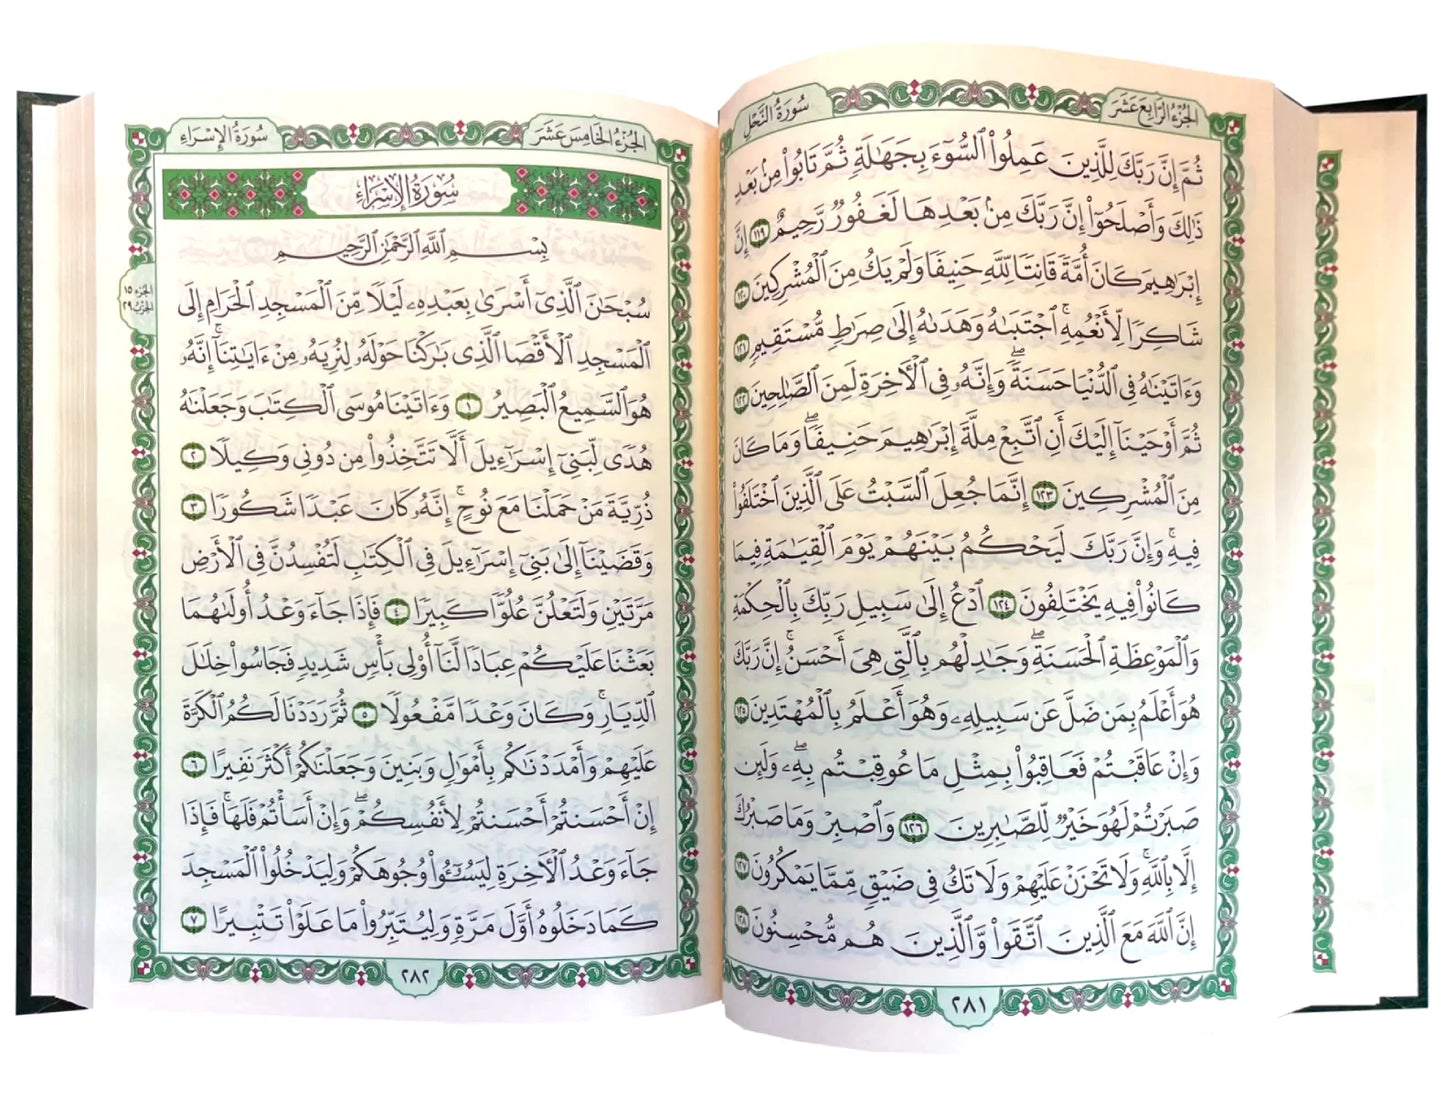 سُورَةُ النَّحْلِ
الجُزْءُ الرَّابِعَ عَشَرَ
ثُمَّ إِنَّ رَبَّكَ لِلَّذِينَ عَمِلُوا۟ ٱلسُّوٓءَ بِجَهَـٰلَةٍ ثُمَّ تَابُوا۟ مِنۢ بَعْدِ
ذَٰلِكَ وَأَصْلَحُوٓا۟ إِنَّ رَبَّكَ مِنۢ بَعْدِهَا لَغَفُورٌ رَّحِيمٌ ١١٩ إِنَّ
إِبْرَٰهِيمَ كَانَ أُمَّةً قَانِتًا لِّلَّهِ حَنِيفًا وَلَمْ يَكُ مِنَ ٱلْمُشْرِكِينَ ١٢٠
شَاكِرًا لِّأَنْعُمِهِ ۚ ٱجْتَبَىٰهُ وَهَدَىٰهُ إِلَىٰ صِرَٰطٍ مُّسْتَقِيمٍ ١٢١
وَءَاتَيْنَـٰهُ فِى ٱلدُّنْيَا حَسَنَةً ۖ وَإِنَّهُۥ فِى ٱلْـَٔاخِرَةِ لَمِنَ ٱلصَّـٰلِحِينَ ١٢٢
ثُمَّ أَوْحَيْنَآ إِلَيْكَ أَنِ ٱتَّبِعْ مِلَّةَ إِبْرَٰهِيمَ حَنِيفًا ۖ وَمَا كَانَ
مِنَ ٱلْمُشْرِكِينَ ١٢٣ إِنَّمَا جُعِلَ ٱلسَّبْتُ عَلَى ٱلَّذِينَ ٱخْتَلَفُوا۟
فِيهِ ۚ وَإِنَّ رَبَّكَ لَيَحْكُمُ بَيْنَهُمْ يَوْمَ ٱلْقِيَـٰمَةِ فِيمَا
كَانُوا۟ فِيهِ يَخْتَلِفُونَ ١٢٤ ٱدْعُ إِلَىٰ سَبِيلِ رَبِّكَ بِٱلْحِكْمَةِ
وَٱلْمَوْعِظَةِ ٱلْحَسَنَةِ ۖ وَجَـٰدِلْهُم بِٱلَّتِى هِىَ أَحْسَنُ ۚ إِنَّ رَبَّكَ
هُوَ أَعْلَمُ بِمَن ضَلَّ عَن سَبِيلِهِۦ وَهُوَ أَعْلَمُ بِٱلْمُهْتَدِينَ ١٢٥
وَإِنْ عَاقَبْتُمْ فَعَاقِبُوا۟ بِمِثْلِ مَا عُوقِبْتُم بِهِۦ ۖ وَلَئِن
صَبَرْتُمْ لَهُوَ خَيْرٌ لِّلصَّـٰبِرِينَ ١٢٦ وَٱصْبِرْ وَمَا صَبْرُكَ
إِلَّا بِٱللَّهِ ۚ وَلَا تَحْزَنْ عَلَيْهِمْ وَلَا تَكُ فِى ضَيْقٍ مِّمَّا يَمْكُرُونَ ١٢٧
إِنَّ ٱللَّهَ مَعَ ٱلَّذِينَ ٱتَّقَوا۟ وَّٱلَّذِينَ هُم مُّحْسِنُونَ ١٢٨
٢٨١
سُورَةُ الإِسْرَاءِ
الجُزْءُ الخَامِسَ عَشَرَ
سُورَةُ الإِسْرَاءِ
بِسْمِ ٱللَّهِ ٱلرَّحْمَـٰنِ ٱلرَّحِيمِ
الجُزْء ١٥
الحِزْبُ ٢٩
سُبْحَـٰنَ ٱلَّذِىٓ أَسْرَىٰ بِعَبْدِهِۦ لَيْلًا مِّنَ ٱلْمَسْجِدِ ٱلْحَرَامِ إِلَى
ٱلْمَسْجِدِ ٱلْأَقْصَا ٱلَّذِى بَـٰرَكْنَا حَوْلَهُۥ لِنُرِيَهُۥ مِنْ ءَايَـٰتِنَآ ۚ إِنَّهُۥ
هُوَ ٱلسَّمِيعُ ٱلْبَصِيرُ ١ وَءَاتَيْنَا مُوسَى ٱلْكِتَـٰبَ وَجَعَلْنَـٰهُ
هُدًى لِّبَنِىٓ إِسْرَٰٓءِيلَ أَلَّا تَتَّخِذُوا۟ مِن دُونِى وَكِيلًا ٢
ذُرِّيَّةَ مَنْ حَمَلْنَا مَعَ نُوحٍ ۚ إِنَّهُۥ كَانَ عَبْدًا شَكُورًا ٣
وَقَضَيْنَآ إِلَىٰ بَنِىٓ إِسْرَٰٓءِيلَ فِى ٱلْكِتَـٰبِ لَتُفْسِدُنَّ فِى ٱلْأَرْضِ
مَرَّتَيْنِ وَلَتَعْلُنَّ عُلُوًّا كَبِيرًا ٤ فَإِذَا جَآءَ وَعْدُ أُولَىٰهُمَا
بَعَثْنَا عَلَيْكُمْ عِبَادًا لَّنَآ أُو۟لِى بَأْسٍ شَدِيدٍ فَجَاسُوا۟ خِلَـٰلَ
ٱلدِّيَارِ ۚ وَكَانَ وَعْدًا مَّفْعُولًا ٥ ثُمَّ رَدَدْنَا لَكُمُ ٱلْكَرَّةَ
عَلَيْهِمْ وَأَمْدَدْنَـٰكُم بِأَمْوَٰلٍ وَبَنِينَ وَجَعَلْنَـٰكُمْ أَكْثَرَ نَفِيرًا ٦
إِنْ أَحْسَنتُمْ أَحْسَنتُمْ لِأَنفُسِكُمْ ۖ وَإِنْ أَسَأْتُمْ فَلَهَا ۚ فَإِذَا
جَآءَ وَعْدُ ٱلْـَٔاخِرَةِ لِيَسُـۥٓـُٔوا۟ وُجُوهَكُمْ وَلِيَدْخُلُوا۟ ٱلْمَسْجِدَ
كَمَا دَخَلُوهُ أَوَّلَ مَرَّةٍ وَلِيُتَبِّرُوا۟ مَا عَلَوْا۟ تَتْبِيرًا ٧
٢٨٢